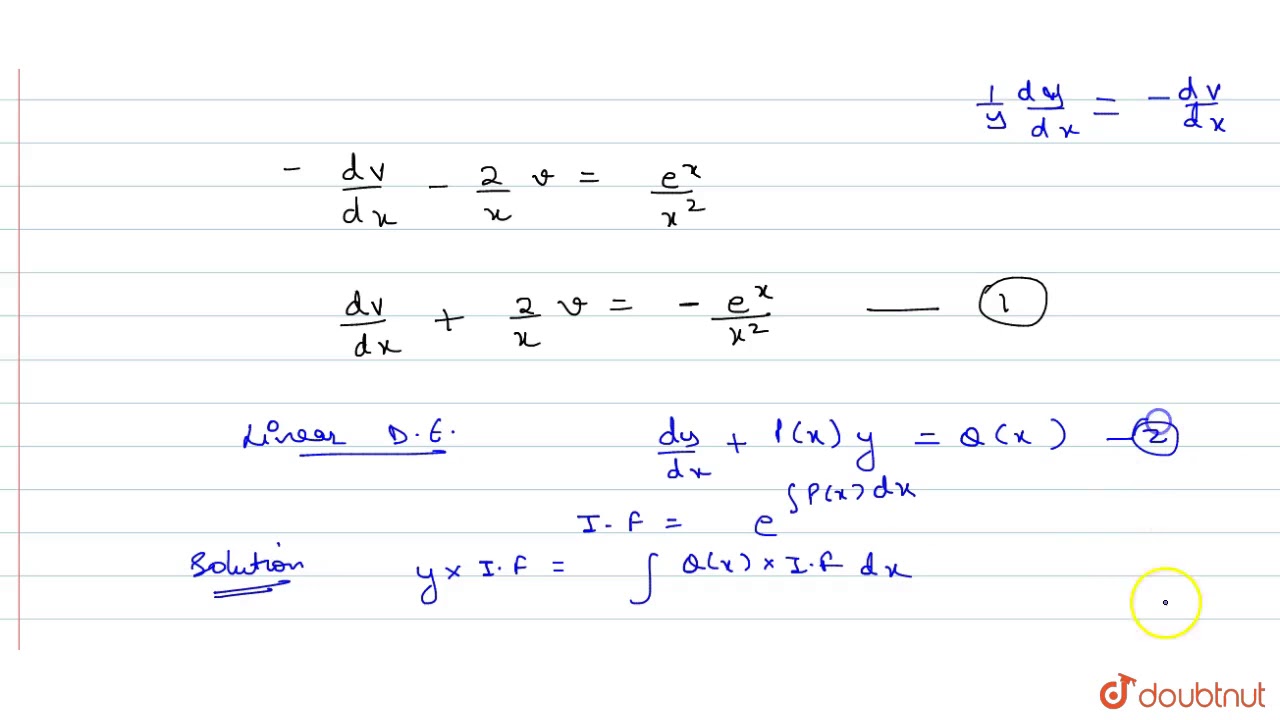 1/y dy/dx = - dv/dx
- dv/dx - 2/x v = e^x/x^2
dv/dx + 2/x v = - e^x/x^2 —— 1
Linear D.E. dy/dx + P(x) y = Q(x) — 2
I.F = e^∫P(x) dx
Solution y × I.F = ∫ Q(x) × I.F dx
doubtnut